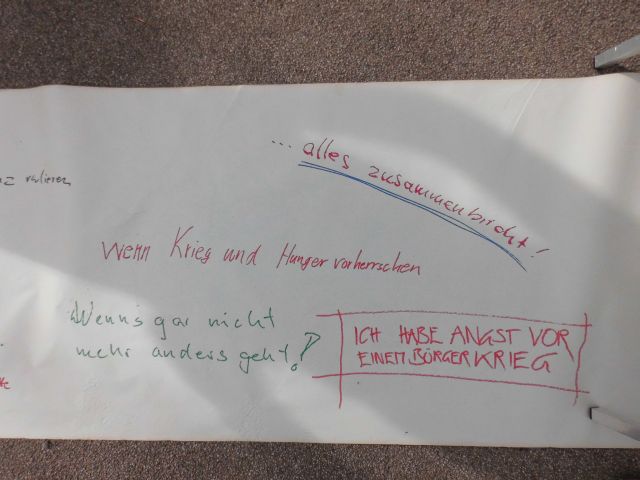 ... alles zusammenbricht!
Wenn Krieg und Hunger vorherrschen
Wenn's gar nicht
mehr anders geht!?
ICH HABE ANGST VOR
EINEM BÜRGERKRIEG